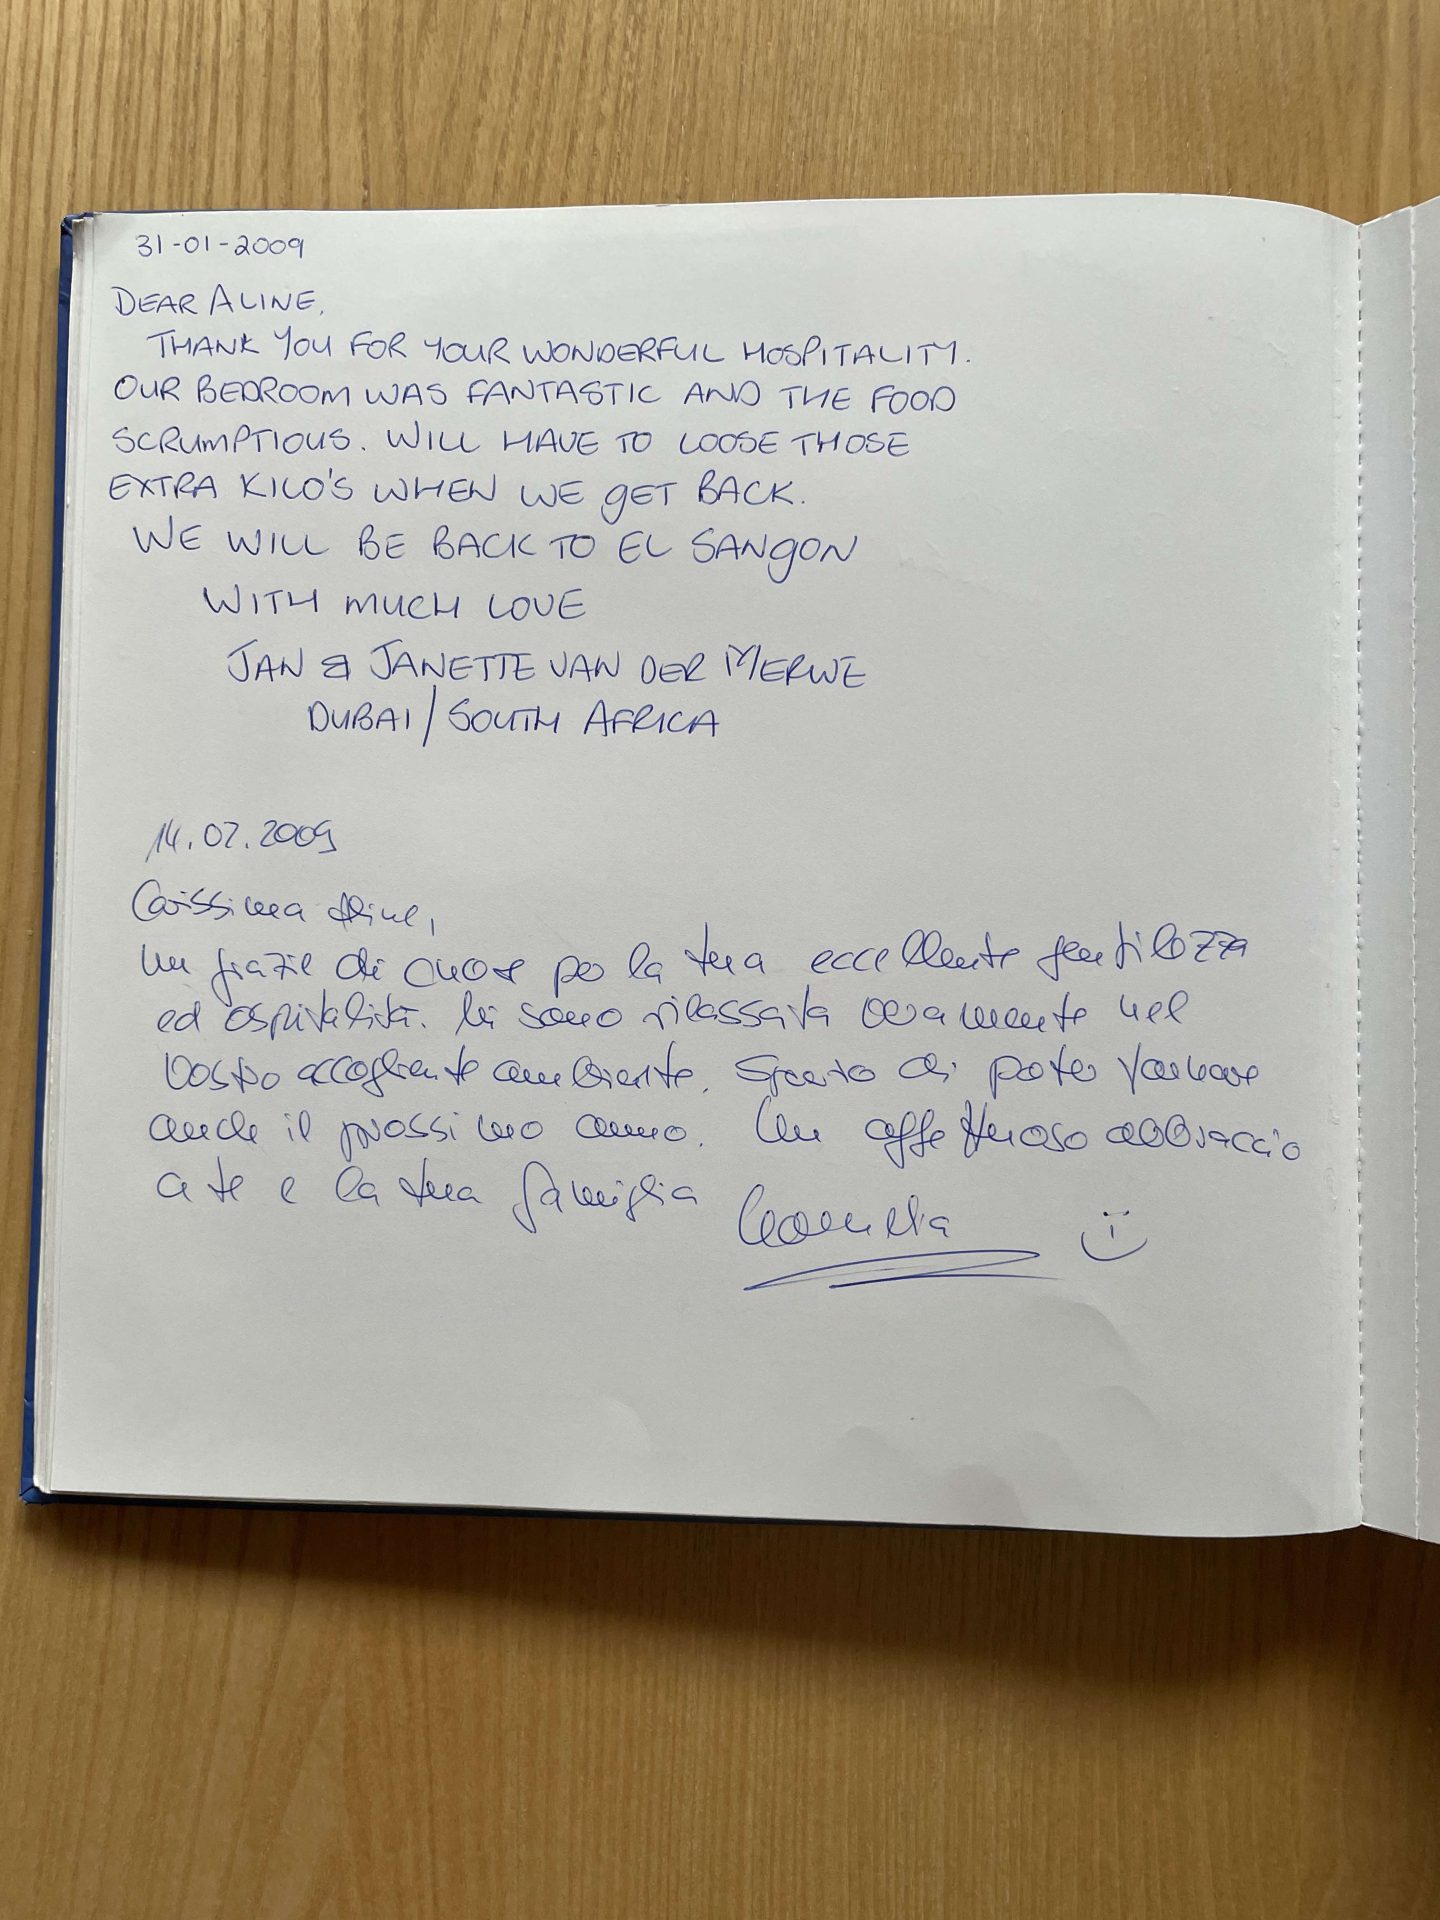 31-01-2009
DEAR ALINE,
THANK YOU FOR YOUR WONDERFUL HOSPITALITY.
OUR BEDROOM WAS FANTASTIC AND THE FOOD
SCRUMPTIOUS. WILL HAVE TO LOOSE THOSE
EXTRA KILO'S WHEN WE GET BACK.
WE WILL BE BACK TO EL SANGON
WITH MUCH LOVE
JAN & JANETTE VAN DER MERWE
DUBAI/SOUTH AFRICA
14.02.2009
Carissima Aline,
un grazie di cuore per la tua eccellente gentilezza
ed ospitalità. Mi sono rilassata veramente nel
vostro accogliente ambiente. Spero di poter tornare
anche il prossimo anno. Un affettuoso abbraccio
a te e la tua famiglia